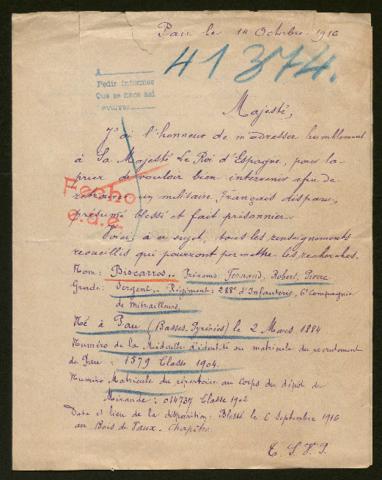 Pau le 14 Octobre 1916
41374.
A
Pedir informes
Que se hace así
Fecho
Majesté,
J'ai l'honneur de m'adresser humblement
à Sa Majesté Le Roi d'Espagne, pour la
prier de vouloir bien intervenir afin de
retrouver un militaire Français disparu,
présumé blessé et fait prisonnier.
Voici, à ce sujet, tous les renseignements
recueillis qui pourront permettre les recherches.
Nom: Biscarros.. Prénoms: Fernand, Robert, Pierre
Grade: Sergent. Régiment: 288e d'Infanterie, 6e Compagnie
de mitrailleurs.
Né à Pau (Basses-Pyrénées) le 2 Mars 1884
Numéro de la Médaille d'identité ou matricule du recrutement
de Pau: 1579 Classe 1904.
Numéro Matricule du répertoire au corps du dépôt de
Mirande: 014737 Classe 1902
Date et lieu de la disparition: Blessé le 6 Septembre 1916
au Bois de Vaux-Chapitre.
T. S. V. P.